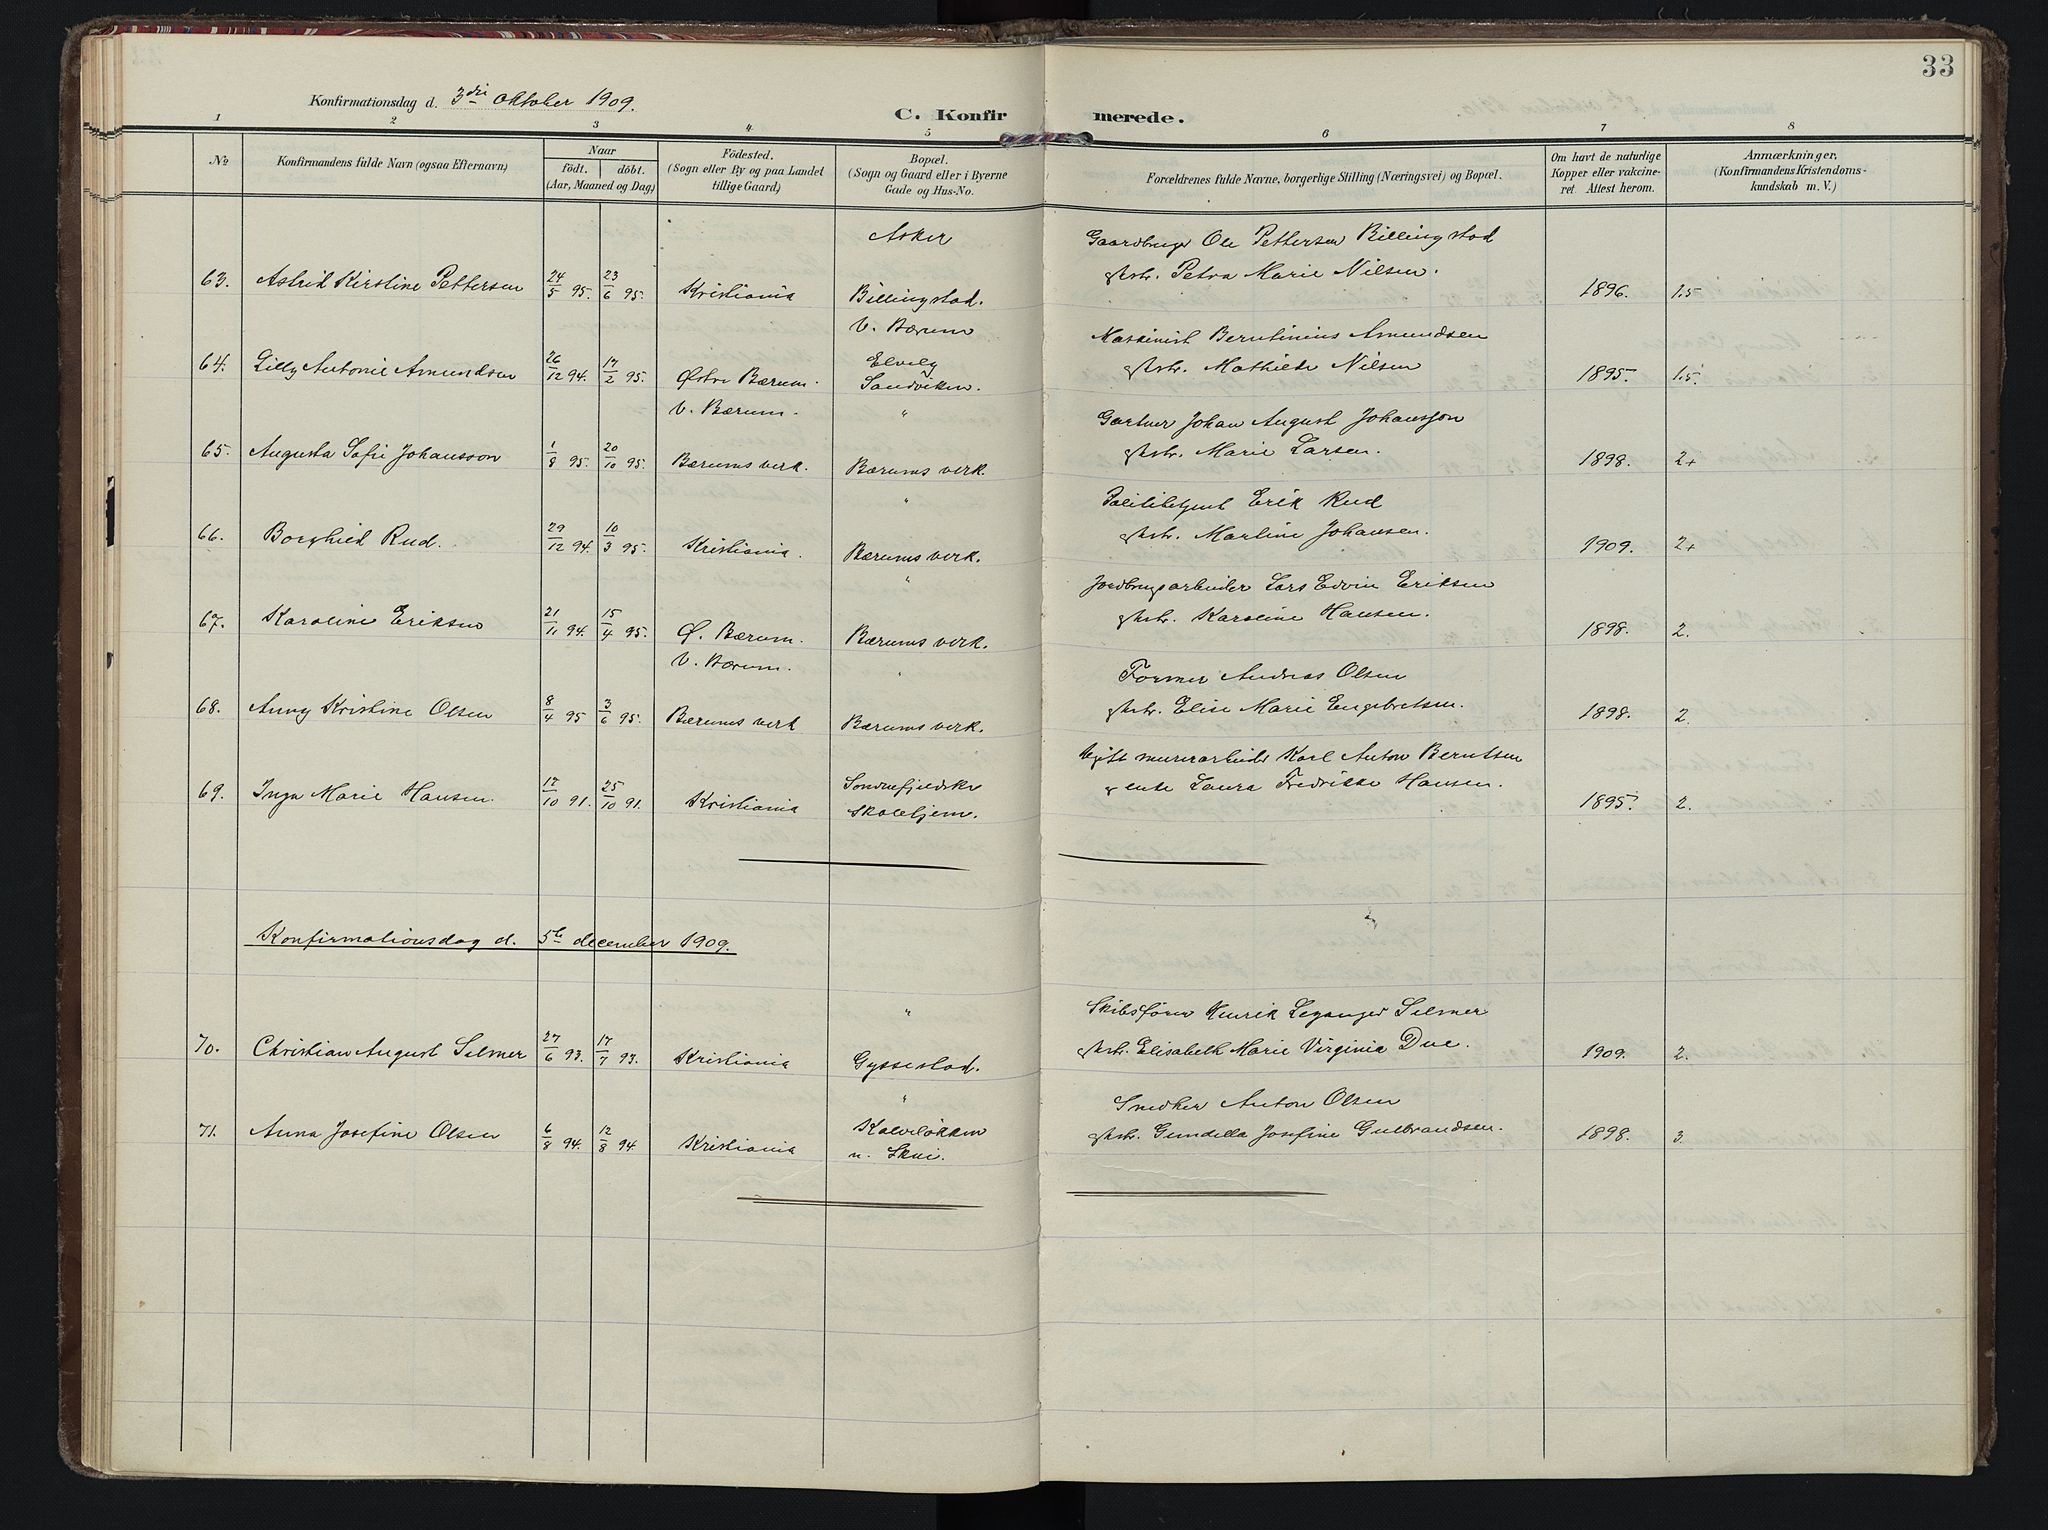 33
Konfirmationsdag d. 3die oktober 1909.
C. Konfirmerede.
1 2 3 4 5 6 7 8
No
Konfirmandens fulde Navn (ogsaa Efternavn)
Naar
födt. döbt.
(Aar, Maaned og Dag)
Födested.
(Sogn eller By og paa Landet
tillige Gaard)
Bopæl.
(Sogn og Gaard eller i Byerne
Gade og Hus-No.
Forældrenes fulde Navne, borgerlige Stilling (Næringsvei) og Bopæl.
Om havt de naturlige
Kopper eller vakcine-
ret. Attest herom.
Anmærkninger.
(Konfirmandens Kristendoms-
kundskab m. V.)
Asker Gaardbruger Ole Pettersen Billingstad
63. Astrid Kirstine Pettersen 24/5 95. 23/6 95. Kristiania Billingstad. & hstr. Petra Marie Nilsen. 1896. 1.5
V. Bærum Maskinist Berntinius Amundsen
64. Lilly Antonie Amundsen 26/12 94. 17/2 95. Østre Bærum. Elvely Sandviken. & hstr. Mathilde Nilsen 1895. 1.5.
V. Bærum. " Gartner Johan August Johansson
65. Augusta Sofie Johansson 1/8 95. 20/10 95. Bærums verk. Bærums verk. & hstr. Marie Larsen. 1898. 2+
" Politibetjent Erik Rud
66. Borghild Rud. 29/12 94. 10/3 95. Kristiania. Bærums verk. & hstr. Martine Johansen. 1909. 2+
" Jordbrugsarbeider Lars Edvin Eriksen
67. Karoline Eriksen 21/11 94. 15/4 95. Ø. Bærum. Bærums verk. & hstr. Karoline Hansen. 1898. 2.
V. Bærum. " Former Andreas Olsen
68. Anny Kristine Olsen 8/4 95 3/6 95. Bærums verk Bærums verk. & hstr. Elise Marie Engebretsen. 1898. 2.
Ugift murerarbeider Karl Anton Berntsen
69. Inga Marie Hansen. 17/10 91. 25/10 91. Kristiania Søndenfjeldske Skolehjem. & enke Laura Fredrikke Hansen. 1895. 2.
Konfirmationsdag d. 5te december 1909.
" Skibsfører Henrik Leganger Selmer
70. Christian August Selmer 27/6 93. 17/7 93. Kristiania Gyssestad. & hstr. Elisabeth Marie Virginia Due. 1909. 2.
" Snedker Anton Olsen
71. Anna Josefine Olsen 6/8 94. 12/8 94. Kristiania Kalveløkken & hstr. Gundella Josefine Gulbrandsen. 1898. 3.
u. Skui.